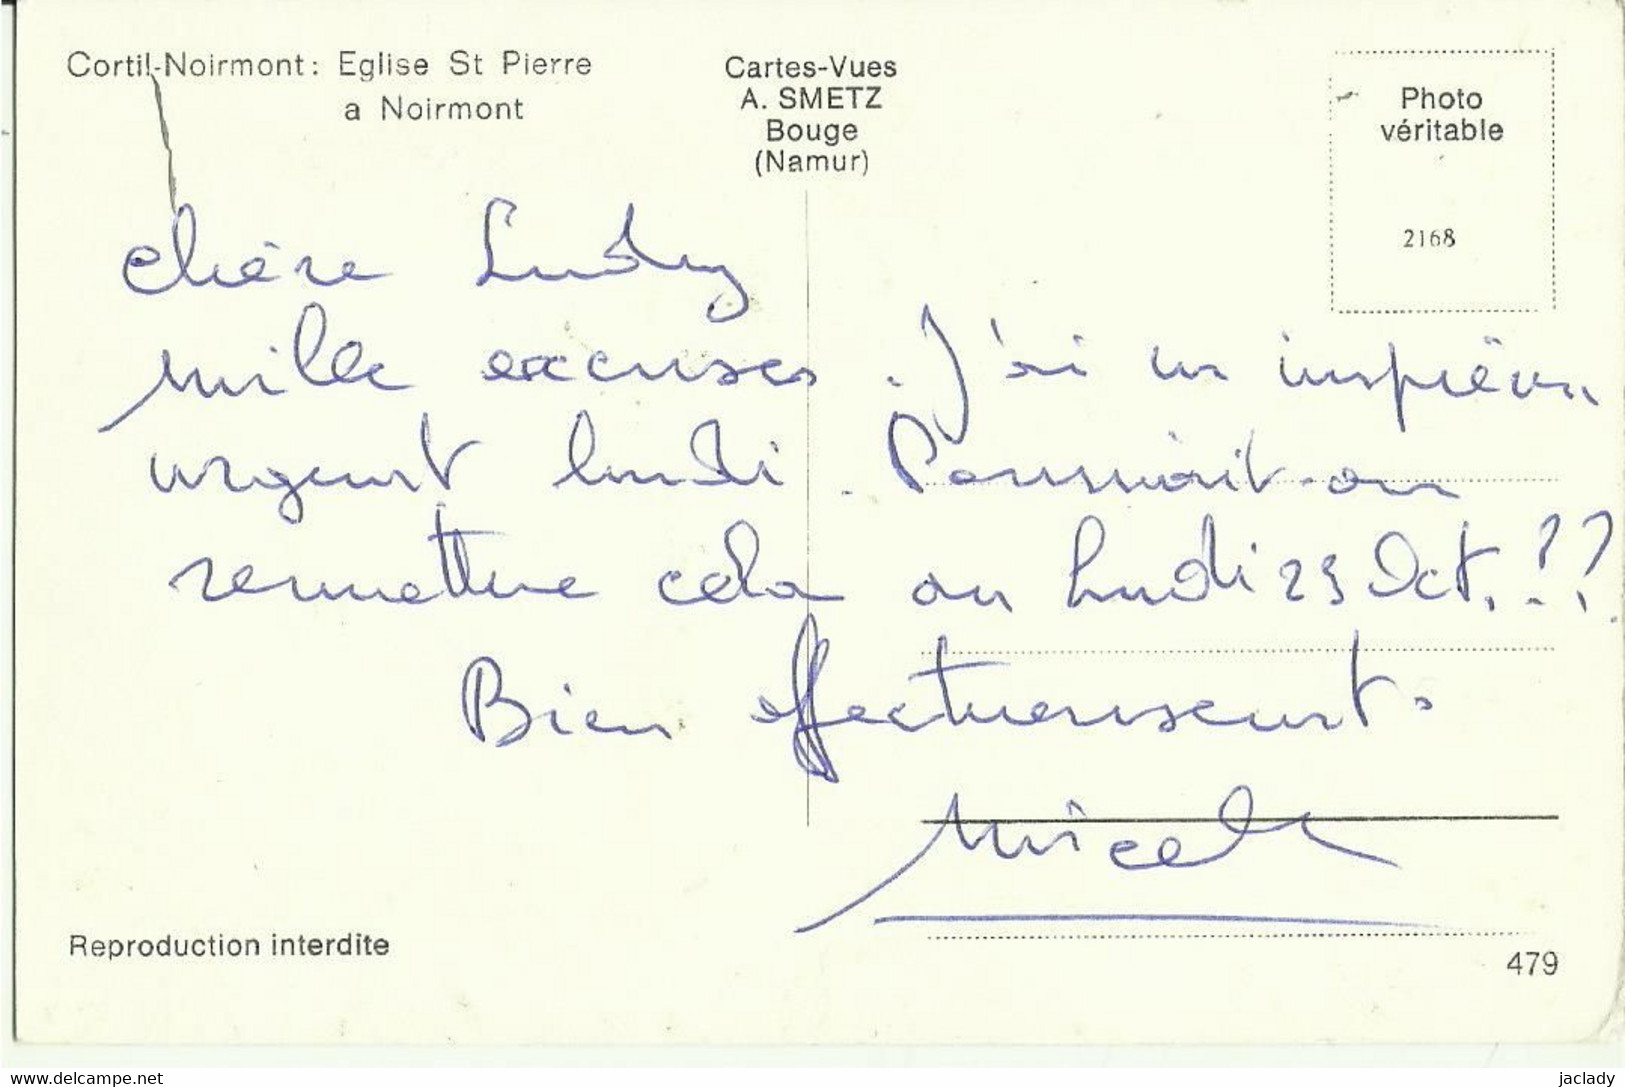 Cortil-Noirmont: Eglise St Pierre
a Noirmont
Cartes-Vues
A. SMETZ
Bouge
(Namur)
Photo
véritable
2168
chère Ludy
mille excuses. J'ai un imprévu
urgent lundi. Pourrait-on
remettre cela au lundi 23 Oct. !??
Bien affectueusement.
Reproduction interdite
479
www.delcampe.net
jaclady